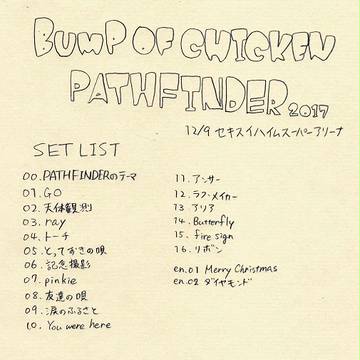 BUMP OF CHICKEN
PATHFINDER 2017
12/9 セキスイハイムスーパーアリーナ
SET LIST
00.PATHFINDERのテーマ
01.GO
02.天体観測
03.ray
04.トーチ
05.とっておきの唄
06.記念撮影
07.pinkie
08.友達の唄
09.涙のふるさと
10.You were here
11.アンサー
12.ラフ・メイカー
13 アリア
14.Butterfly
15.fire sign
16.リボン
en.01 Merry Christmas
en.02 ダイヤモンド